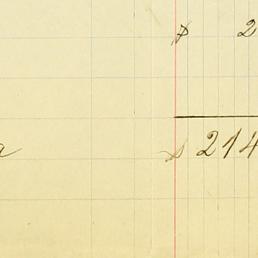 $ 2
a $ 214